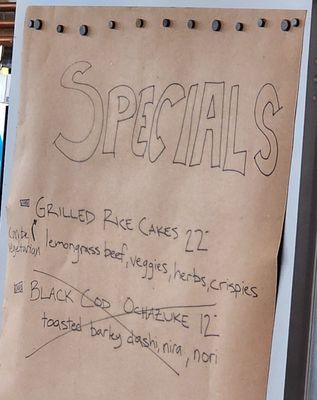 SPECIALS
GRILLED RICE CAKES 22-
can be vegetarian
lemongrass beef, veggies, herbs, crispies
BLACK COD OCHAZUKE 12-
toasted barley dashi, nira, nori